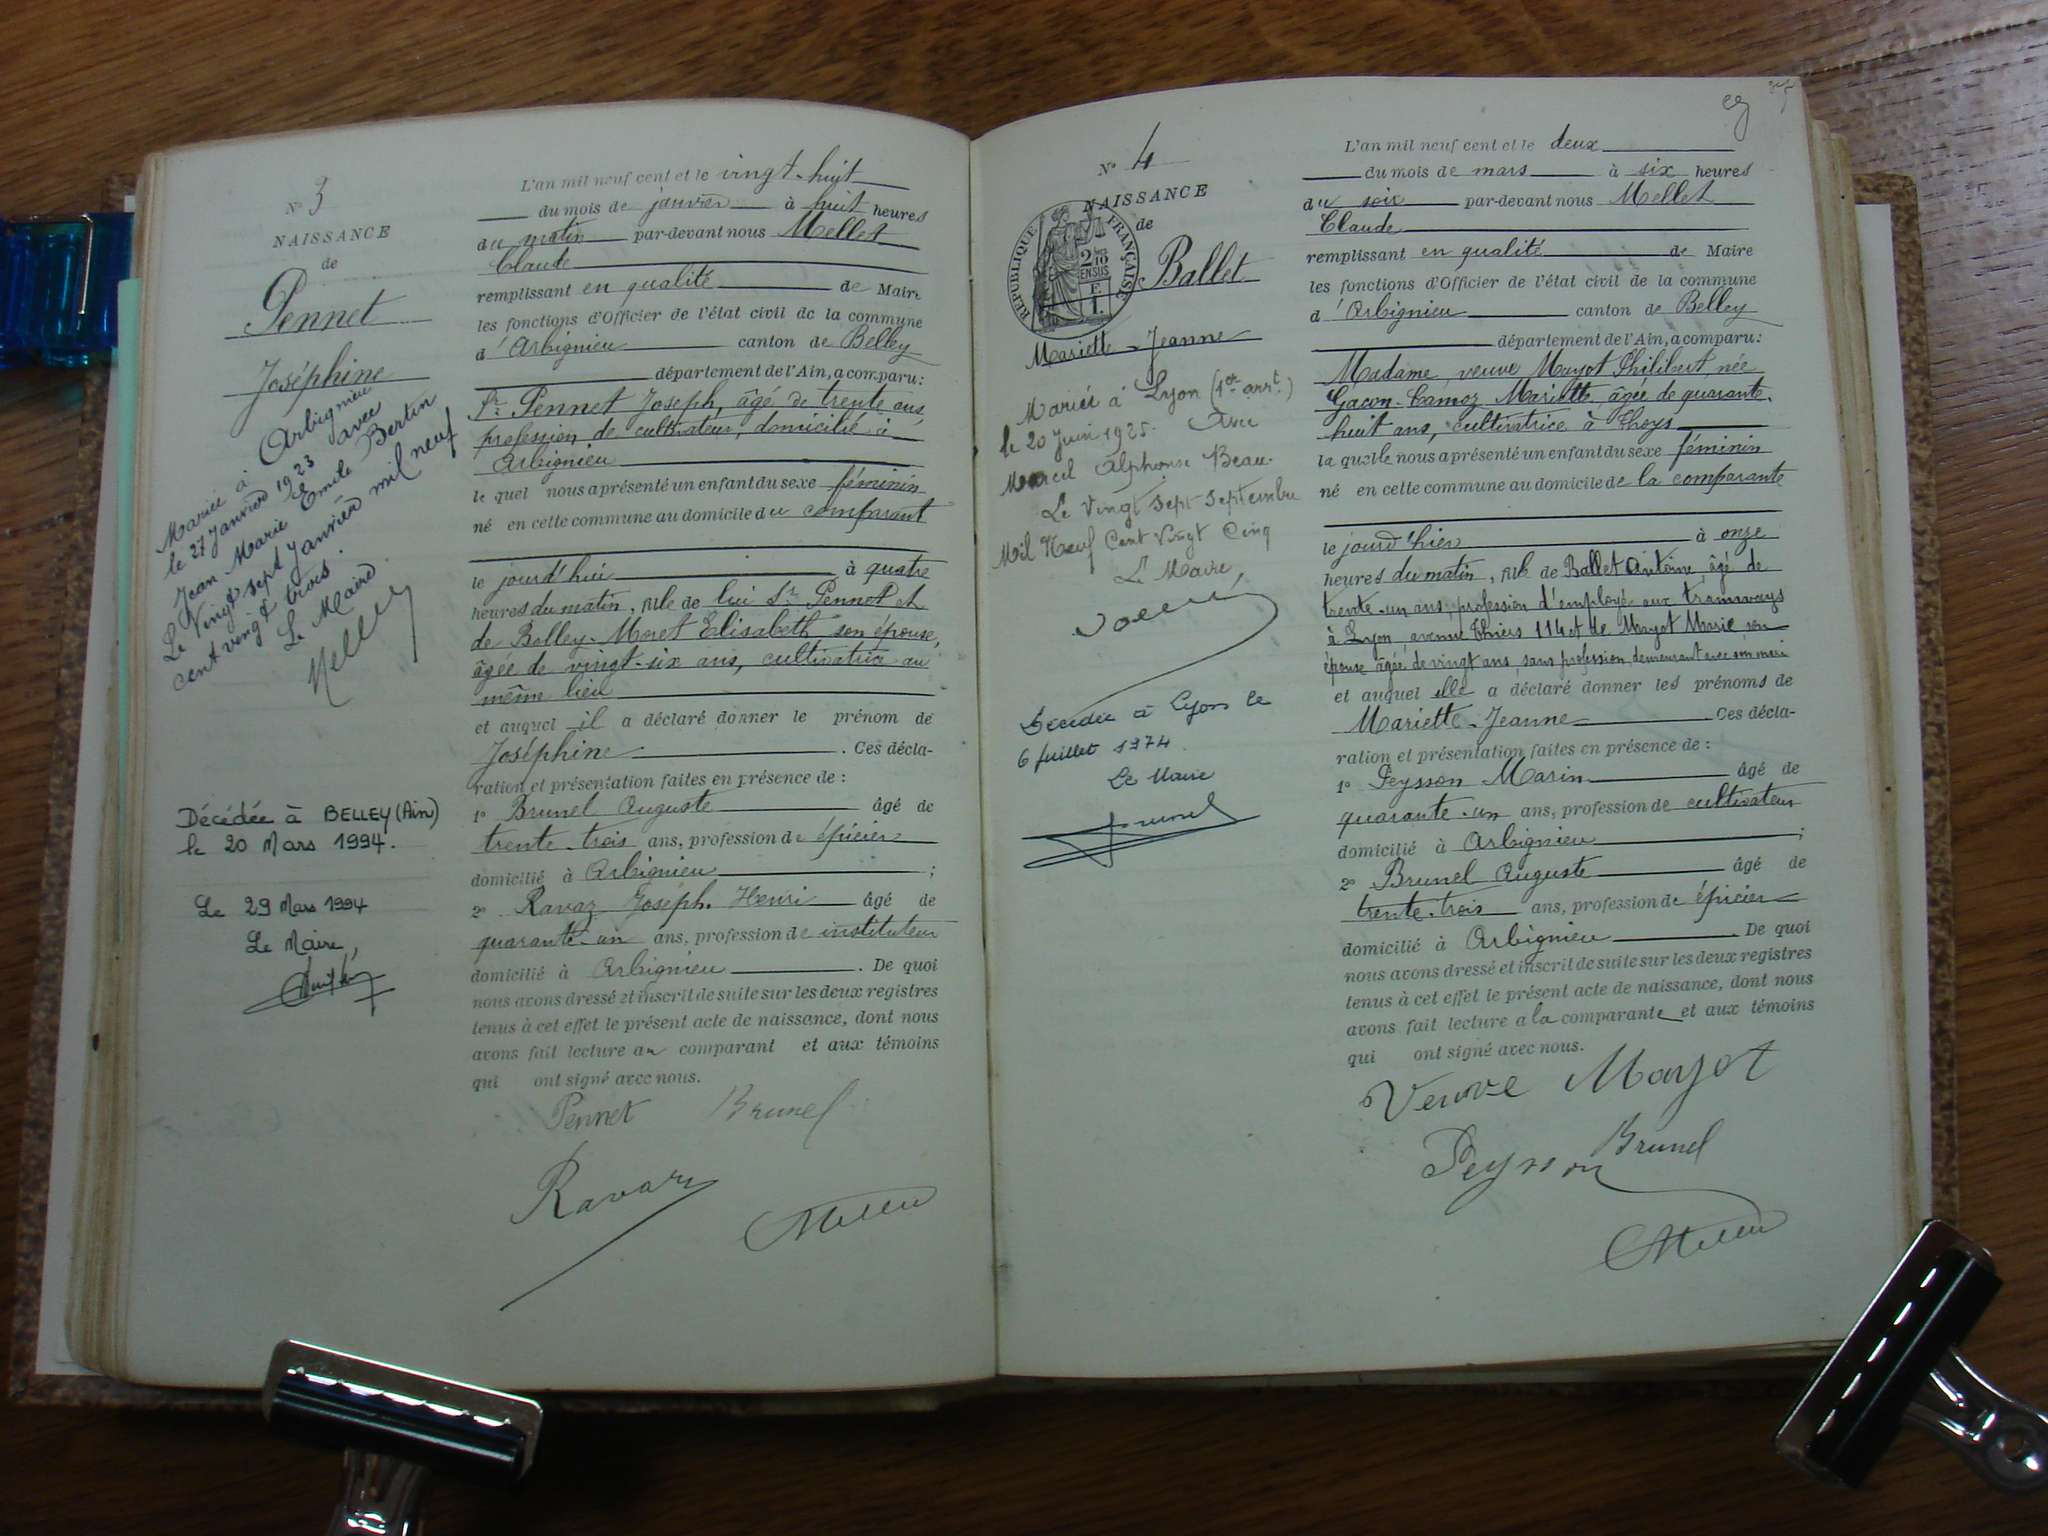 N° 3
NAISSANCE
de
Pennet
Joséphine
Mariée à Arbignieu
le 27 Janvier 1923 avec
Jean Marie Emile Bertin
Le Vingt sept Janvier mil neuf
cent vingt trois.
Le Maire
Décédée à BELLEY (Ain)
le 20 Mars 1994.
Le 29 Mars 1994
Le Maire,
L'an mil neuf cent et le vingt-huit
du mois de janvier à huit heures
du matin par-devant nous Mellet
Claude
remplissant en qualité de Maire
les fonctions d'Officier de l'état civil de la commune
d'Arbignieu canton de Belley
département de l'Ain, a comparu:
Sr Pennet Joseph, âgé de trente ans,
profession de cultivateur, domicilié à
Arbignieu
le quel nous a présenté un enfant du sexe féminin
né en cette commune au domicile du comparant
le jourd'hui à quatre
heures du matin, fille de lui Sr Pennet et
de Bolley-Moret Elisabeth son épouse,
âgée de vingt-six ans, cultivatrice au
même lieu
et auquel il a déclaré donner le prénom de
Joséphine. Ces décla-
ration et présentation faites en présence de :
1° Brunel Auguste âgé de
trente-trois ans, profession de épicier
domicilié à Arbignieu ;
2° Ravaz Joseph-Henri âgé de
quarante-un ans, profession de instituteur
domicilié à Arbignieu. De quoi
nous avons dressé et inscrit de suite sur les deux registres
tenus à cet effet le présent acte de naissance, dont nous
avons fait lecture au comparant et aux témoins
qui ont signé avec nous.
Pennet Brunel
Ravaz
N° 4
NAISSANCE
de
RÉPUBLIQUE FRANÇAISE
Ballet
Mariette-Jeanne
Mariée à Lyon (1er arrt.)
le 20 Juin 1925. Avec
Marcel Alphonse Beau.
Le Vingt Sept Septembre
Mil Neuf Cent Vingt Cinq
Le Maire,
Décédée à Lyon le
6 Juillet 1974.
Le Maire
L'an mil neuf cent et le deux
du mois de mars à six heures
du soir par-devant nous Mellet
Claude
remplissant en qualité de Maire
les fonctions d'Officier de l'état civil de la commune
d'Arbignieu canton de Belley
département de l'Ain, a comparu:
Madame veuve Mayot Philibert, née
Gacon-Camoz Mariette, âgée de quarante-
huit ans, cultivatrice à Thoys
la quelle nous a présenté un enfant du sexe féminin
né en cette commune au domicile de la comparante
le jourd'hier à onze
heures du matin, fille de Ballet Antoine, âgé de
trente-un ans, profession d'employé aux tramways
à Lyon, avenue Thiers 114 et de Mayot Marie son
épouse âgée de vingt ans, sans profession, demeurant avec son mari
et auquel elle a déclaré donner les prénoms de
Mariette-Jeanne Ces décla-
ration et présentation faites en présence de :
1° Peysson Marin âgé de
quarante-un ans, profession de cultivateur
domicilié à Arbignieu ;
2° Brunel Auguste âgé de
trente-trois ans, profession de épicier
domicilié à Arbignieu. De quoi
nous avons dressé et inscrit de suite sur les deux registres
tenus à cet effet le présent acte de naissance, dont nous
avons fait lecture à la comparante et aux témoins
qui ont signé avec nous.
Veuve Mayot
Brunel
Peysson